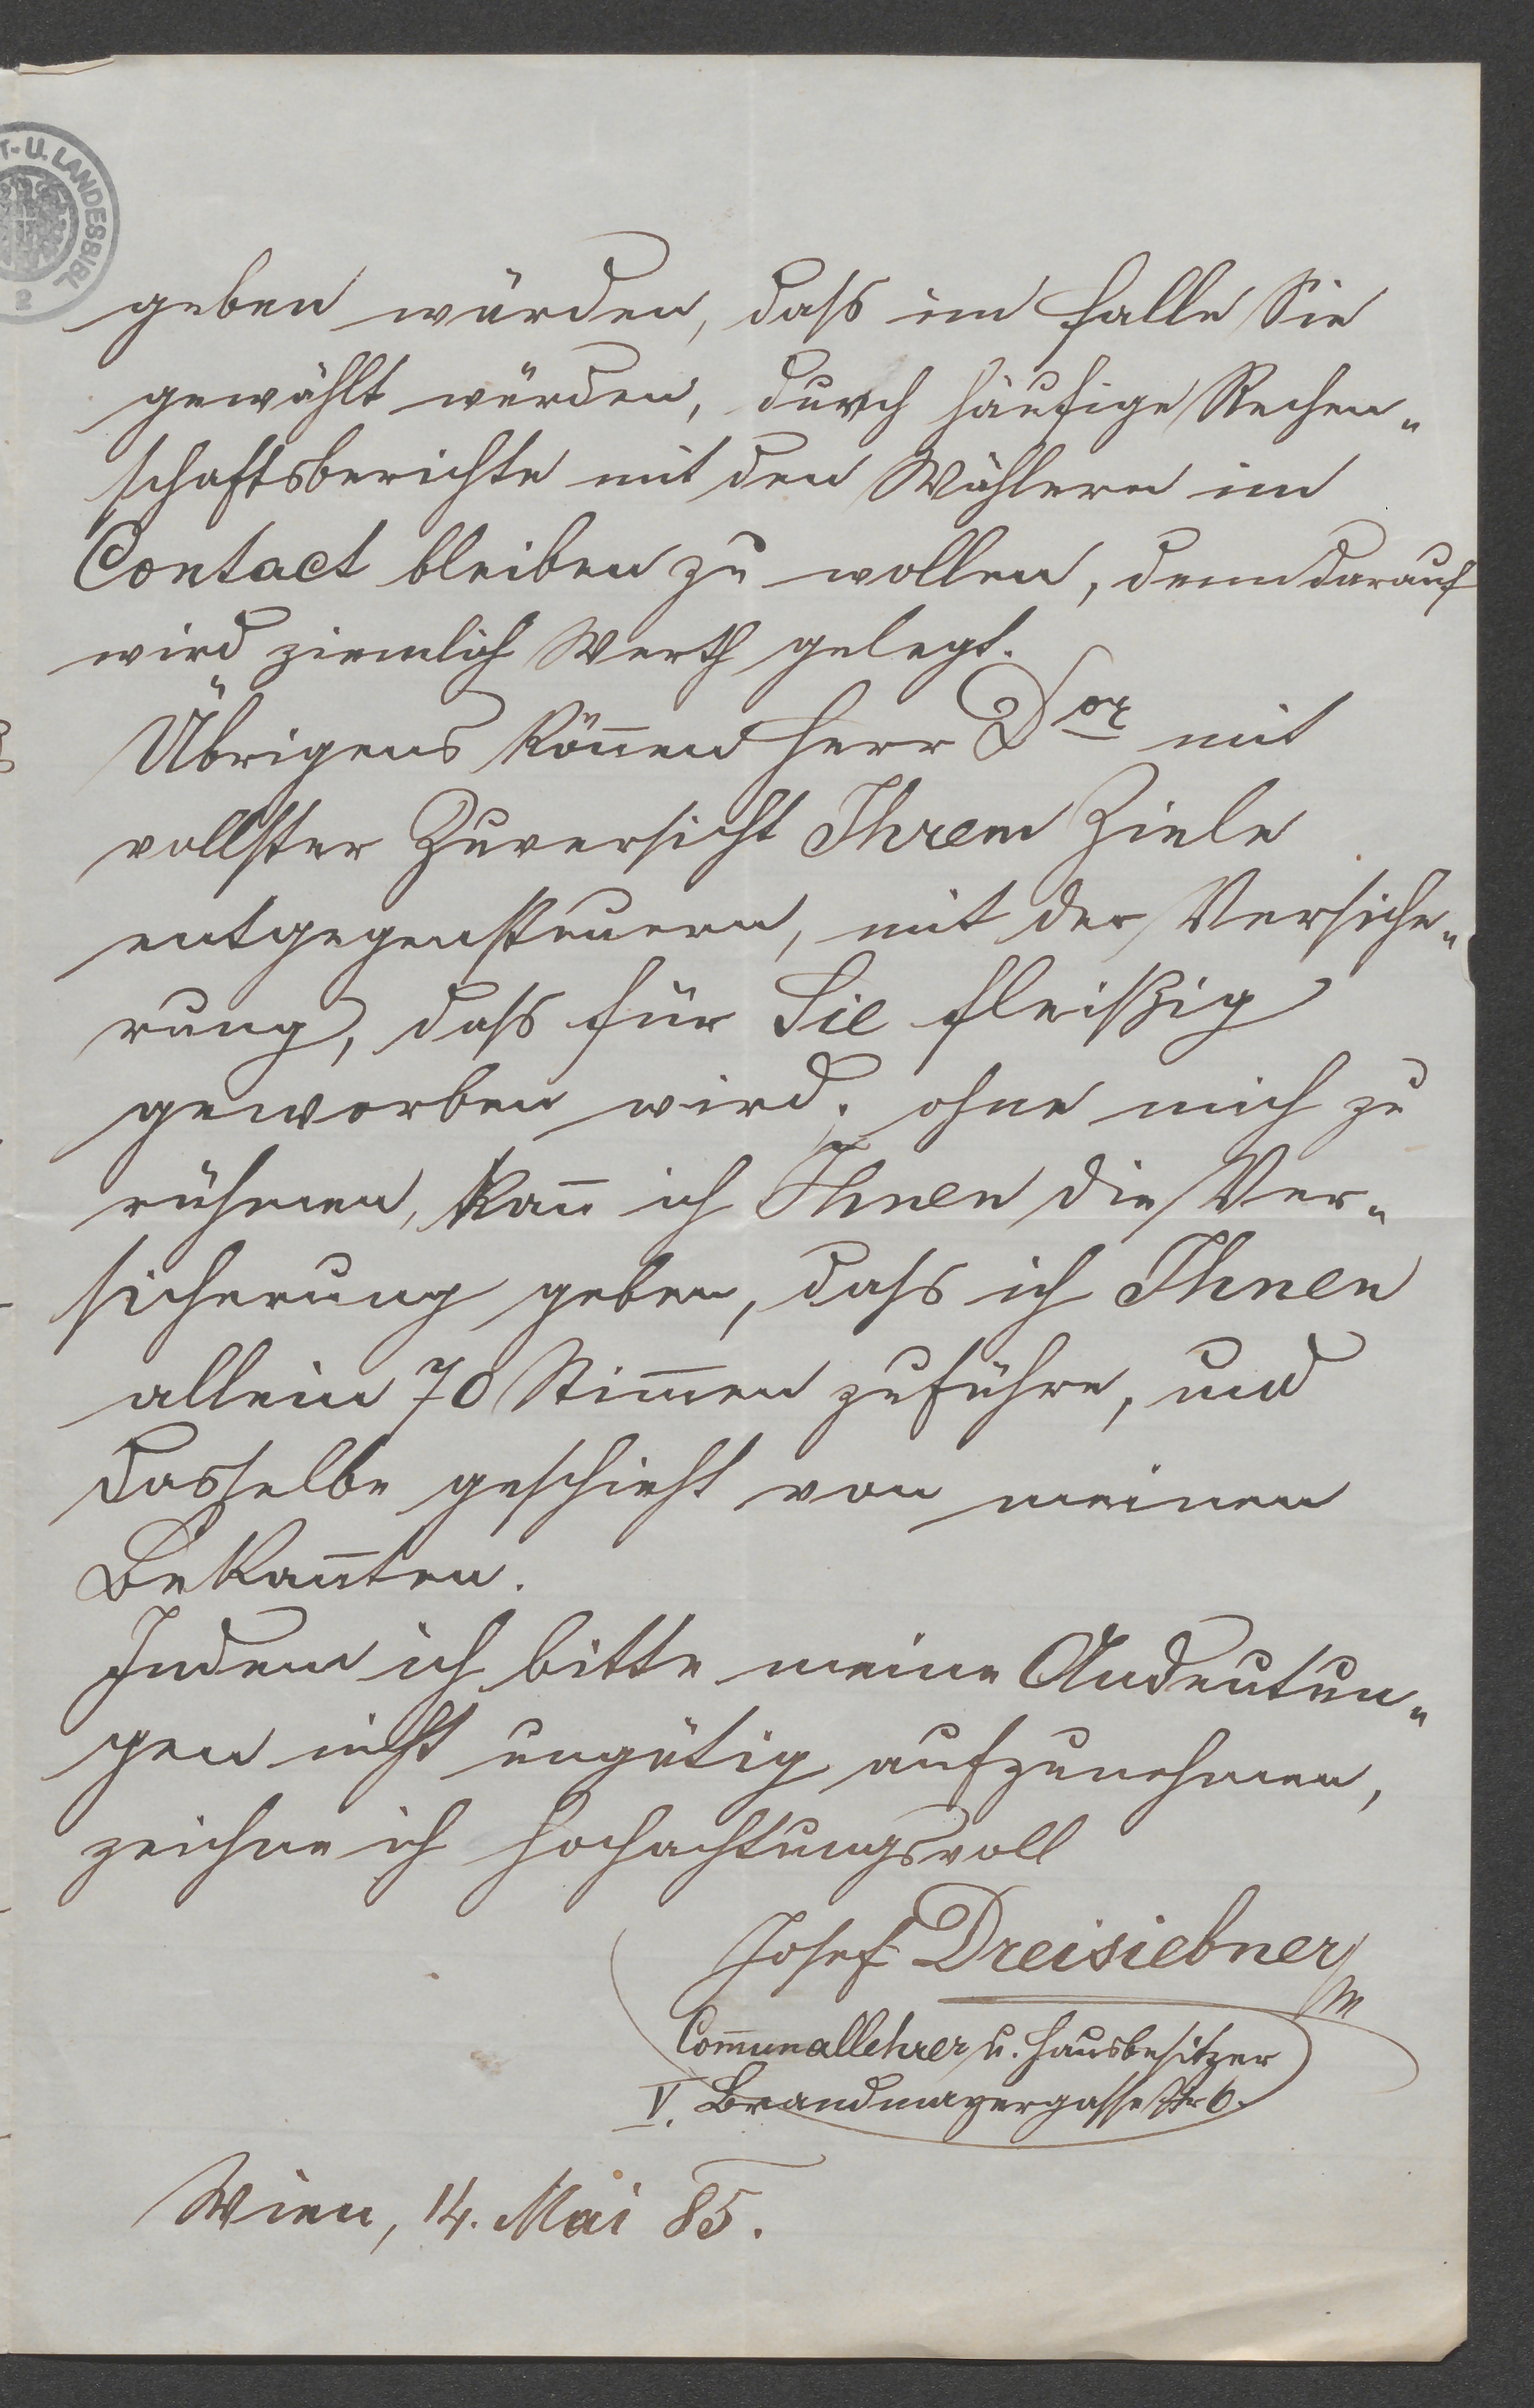 T.- U. LANDESBIBL
2
geben würden, dass im Falle Sie
gewählt würden, durch häufige Rechen„
schaftsberichte mit den Wählern im
Contact bleiben zu wollen, denn darauf
wird ziemlich Werth gelegt.
Übrigens köñen Herr Dor mit
vollster Zuversicht Ihrem Ziele
entgegensteuern, mit der Versiche„
rung, dass für Sie fleißig
geworben wird; ohne mich zu
rühmen, kañ ich Ihnen die Ver„
sicherung geben, dass ich Ihnen
allein 70 Stim̄en zuführe, und
dasselbe geschieht von meinen
Bekañten.
Indem ich bitte meine Andeutun„
gen nicht ungütig aufzunehmen,
zeichne ich hochachtungsvoll
Josef Dreisiebner
Com̄unallehrer u. Hausbesitzer
V. Brandmayergasse Nr 6.
Wien, 14. Mai 85.